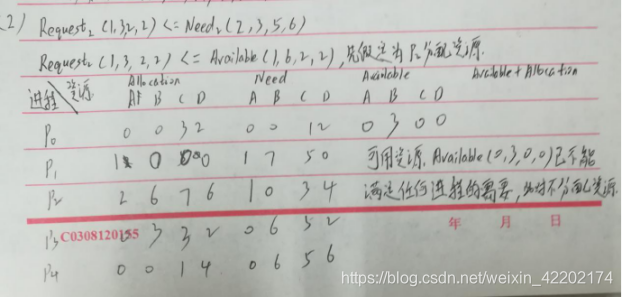 (2) Request₂(1,3,2,2) <= Need₂(2,3,5,6)
Request₂(1,3,2,2) <= Available(1,6,2,2),先假定为P₂分配资源.
进程 资源 Allocation Need Available Available+Allocation
A B C D A B C D A B C D
P₀ 0 0 3 2 0 0 1 2 0 3 0 0
P₁ 1 0 0 0 1 7 5 0 可用资源.Available(0,3,0,0)已不能
P₂ 2 6 7 6 1 0 3 4 满足任何进程的需要,此时不分配资源.
C0308120155 年 月 日
P₃ 3 3 2 0 6 5 2
P₄ 0 0 1 4 0 6 5 6
https://blog.csdn.net/weixin_42202174